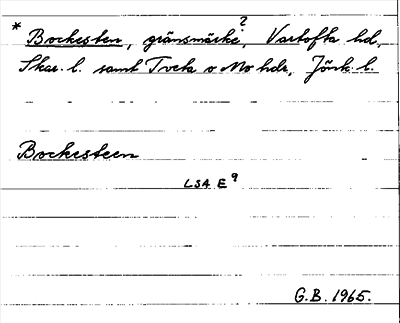 * Bockesten, gränsmärke?, Vartofta hd,
Skar. l. samt Tveta o Mo hdr, Jönk. l.
Bockesteen
LSA E9
G.B. 1965.